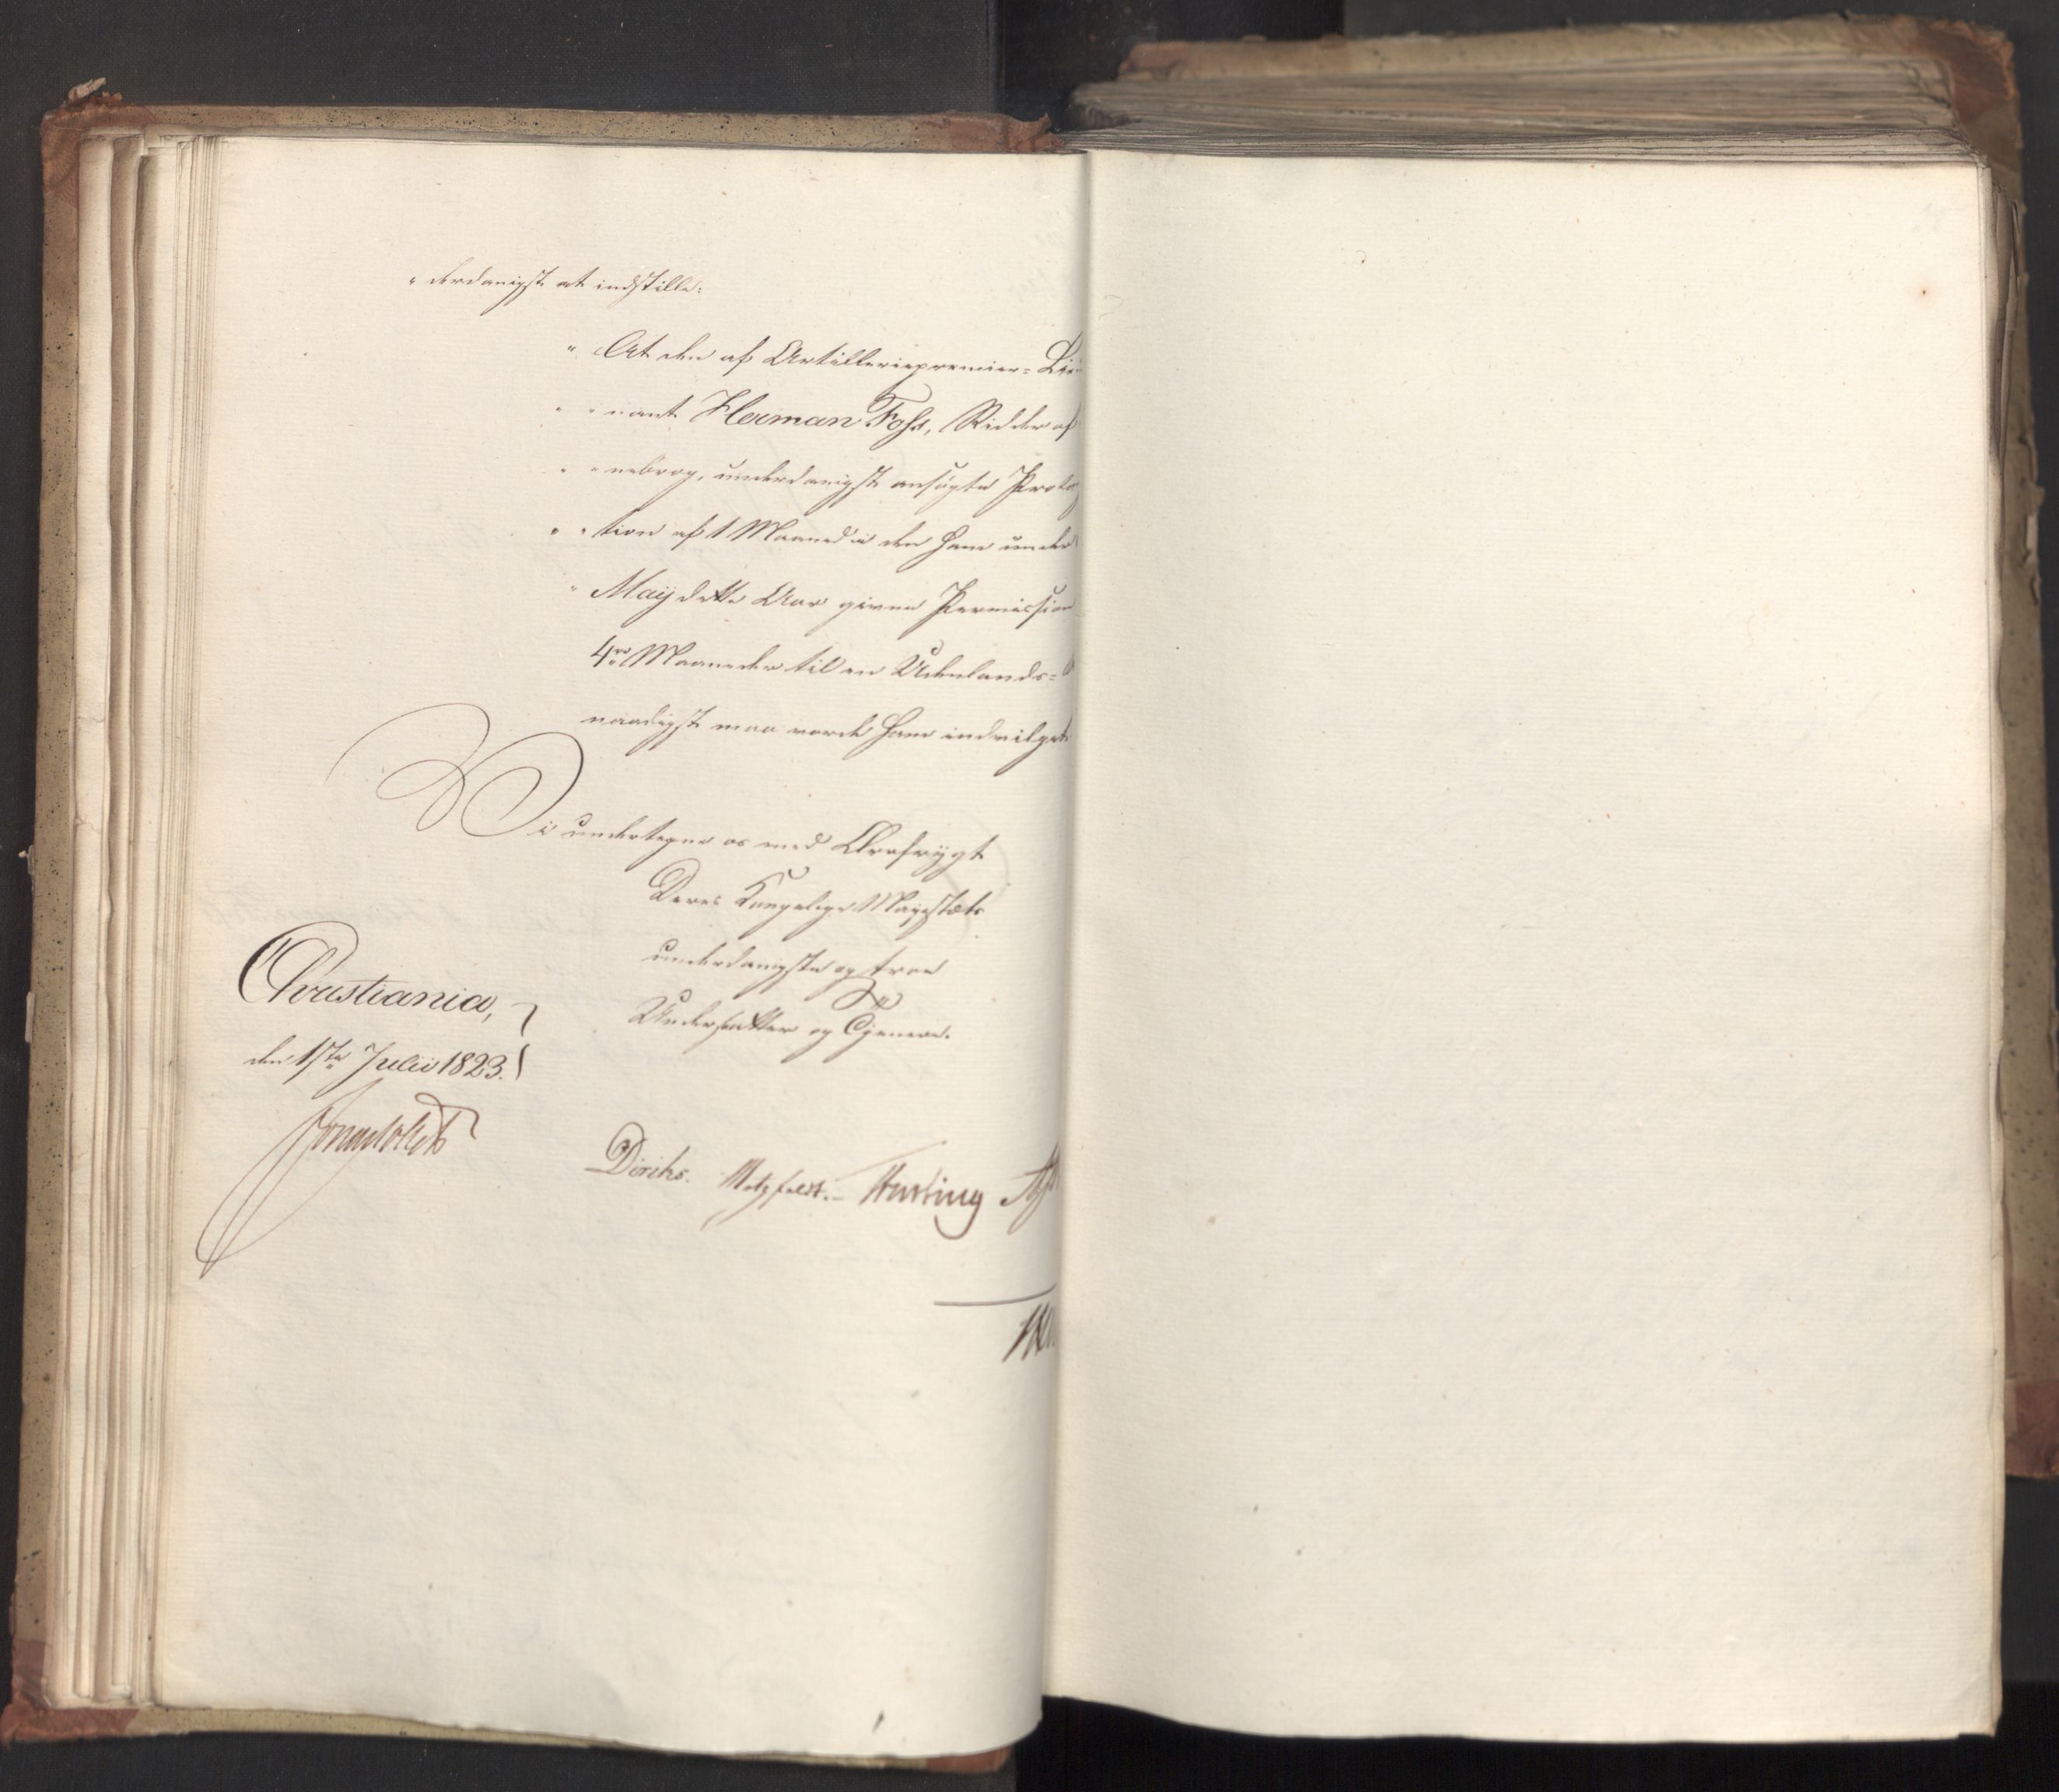 " derdanigst at indstille:
" At den af Artilleriepremier= Lieu
" " nant Herman Foss, Ridder af
" " nebrog, underdanigst ansøgte Prolo
" " tion af 1 Maaned i den ham under
" Maij dette Aar givne Permission
4re Maaneder til en Udenlands=
naadigst maa vorde ham indvilget
Vi undertegne os med Ærefrygt
Deres Kongelige Majestæts
underdanigste og troe
Undersaatter og Tjenere.
Christiania,
den 1ste Julii 1823.
Diriks. Motzfeldt. Hersleb